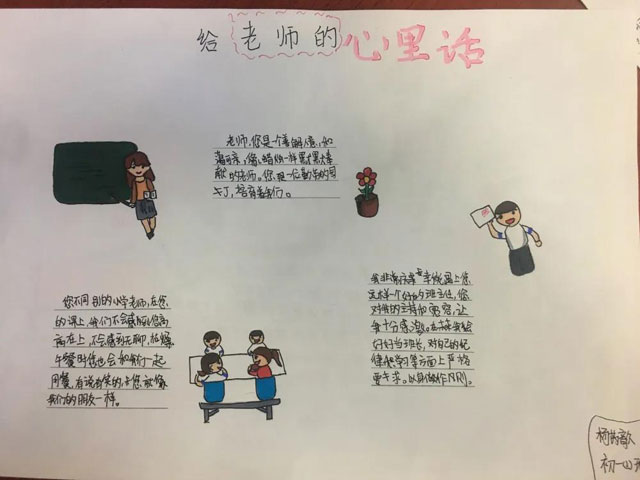 给老师的心里话
老师,您是一个善解人意,和
蔼可亲,像蜡烛一样默默奉
献的老师。您是一位勤劳的园
丁,培育着我们。
您不同别的小学老师,在您
的课上,我们不会感觉您高
高在上,不会感到无聊,
午餐时您也会和我们一起
用餐,有说有笑的,您就像
我们的朋友一样。
我非常幸运能遇上您
这样一个好的班主任,您
对我的支持和宽容,让
我十分感激。
好好当班长,对自己的纪
律和学习等方面上严格
要求。以身作则。
初一